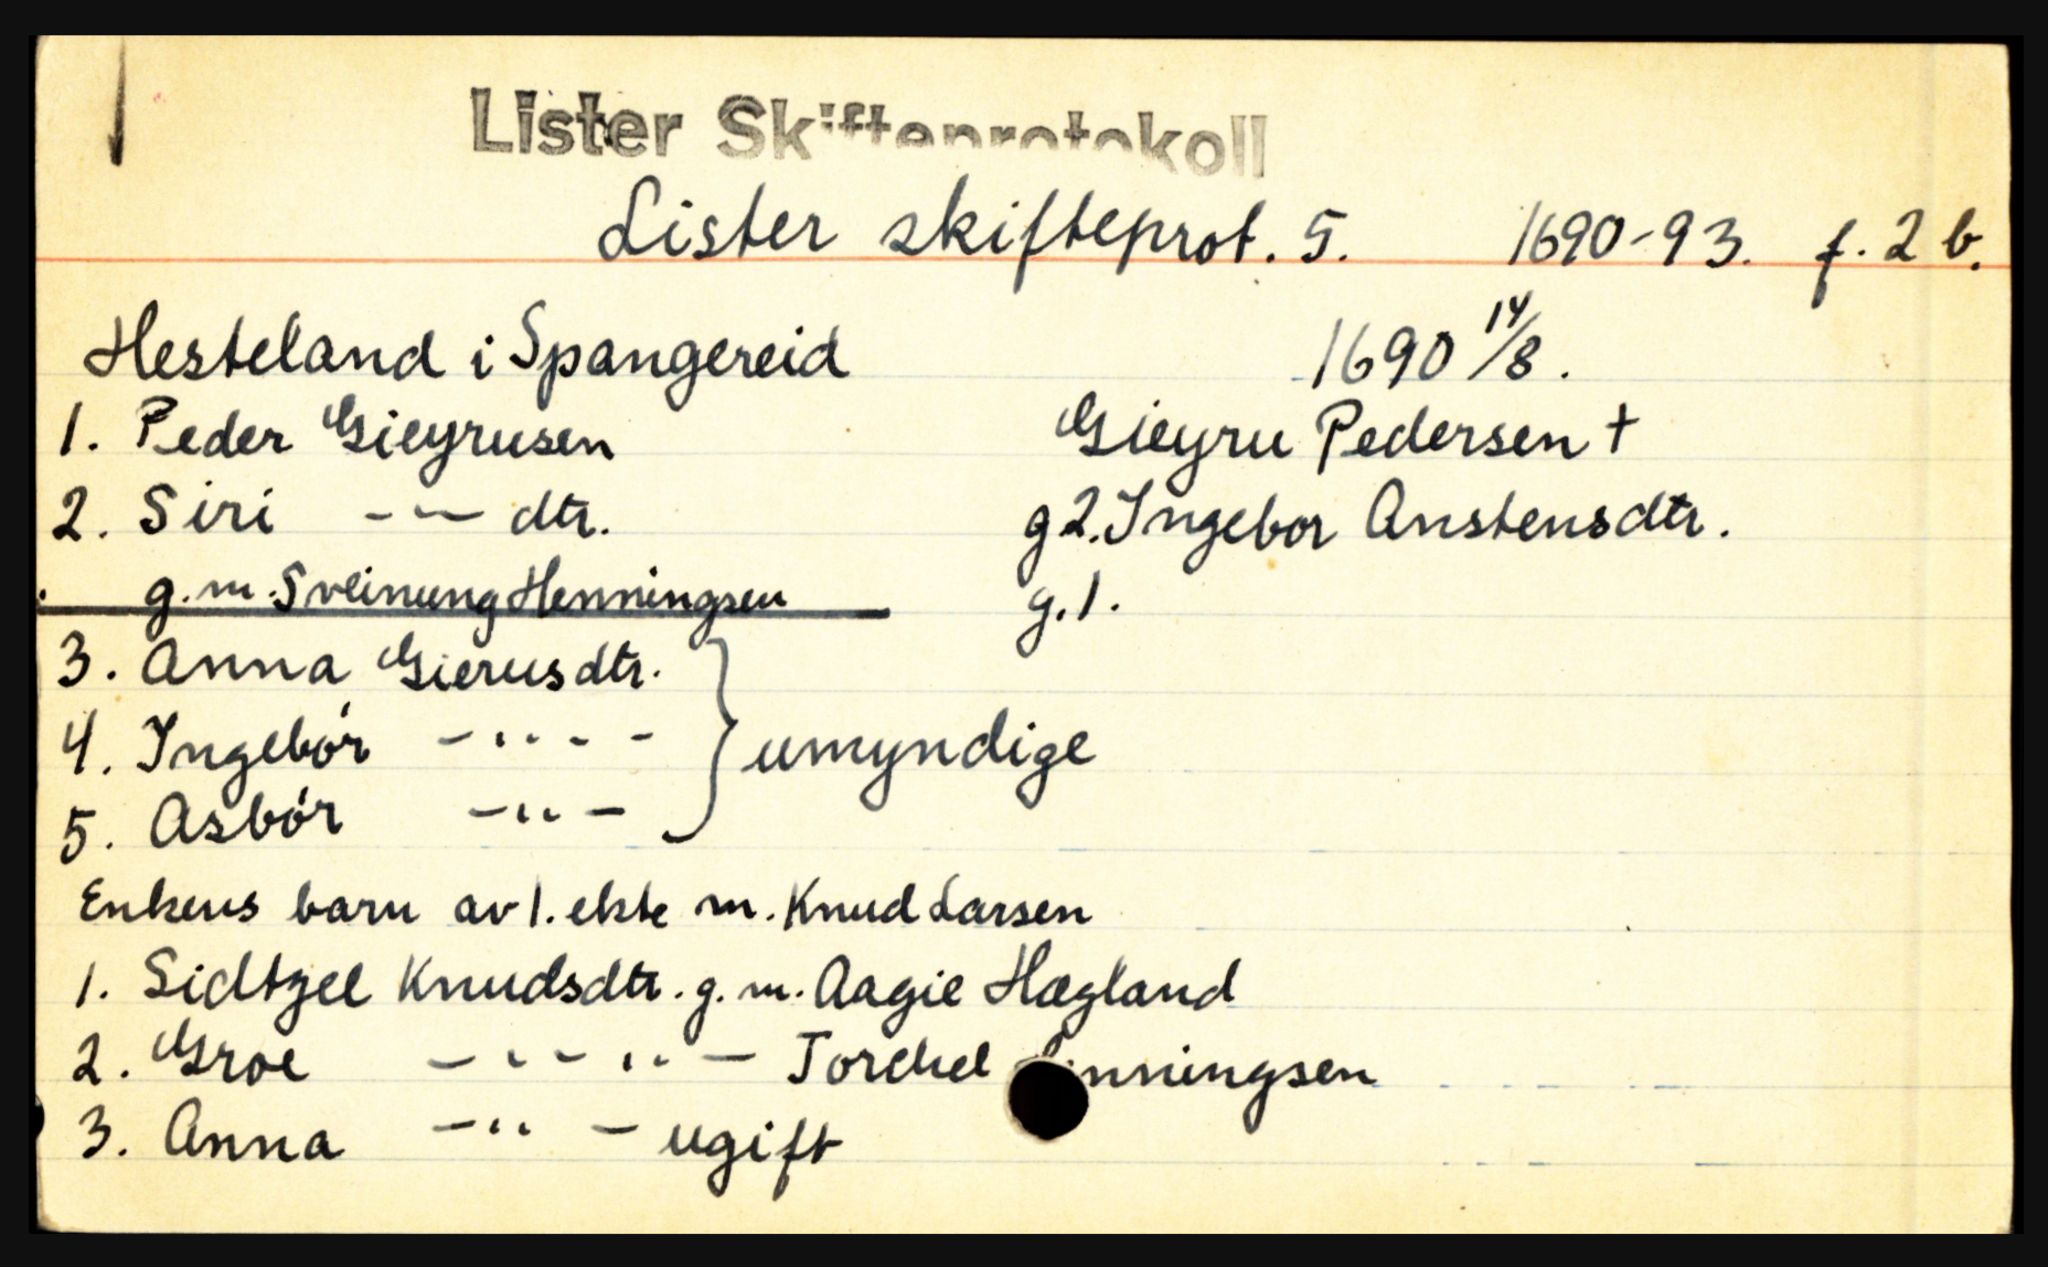 Lister Skifteprotokoll
Lister skifteprot. 5. 1690-93. f. 2 b.
Hesteland i Spangereid 1690 14/8.
1. Peder Gieyrusen Gieyru Pedersen +
2. Siri - - - dtr. g 2. Ingebor Anstensdtr.
g. m. Sveinung Henningsen g. 1.
3. Anna Gierusdtr.
4. Ingebór - " - - } umyndige
5. Asbór - " -
Enkens barn av 1. ekte m. Knud Larsen
1. Sidtzel Knudsdtr. g. m. Aagie Hægland
2. Groe - " - " - Torchel
3. Anna - " - ugift